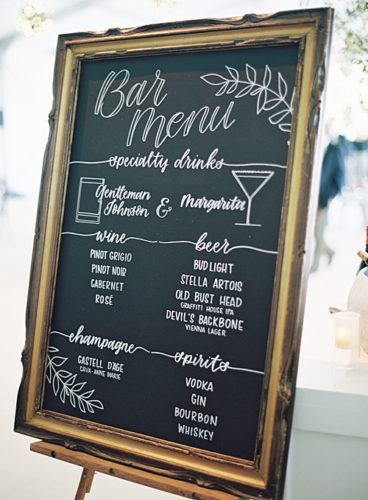 Bar
Menu
specialty drinks
Gentleman
Johnson & Margarita
wine
PINOT GRIGIO
PINOT NOIR
CABERNET
ROSÉ
beer
BUD LIGHT
STELLA ARTOIS
OLD BUST HEAD
GRAFFITI HOUSE IPA
DEVIL'S BACKBONE
VIENNA LAGER
champagne
CASTELL D'AGE
CAVA-ANNE MARIE
spirits
VODKA
GIN
BOURBON
WHISKEY